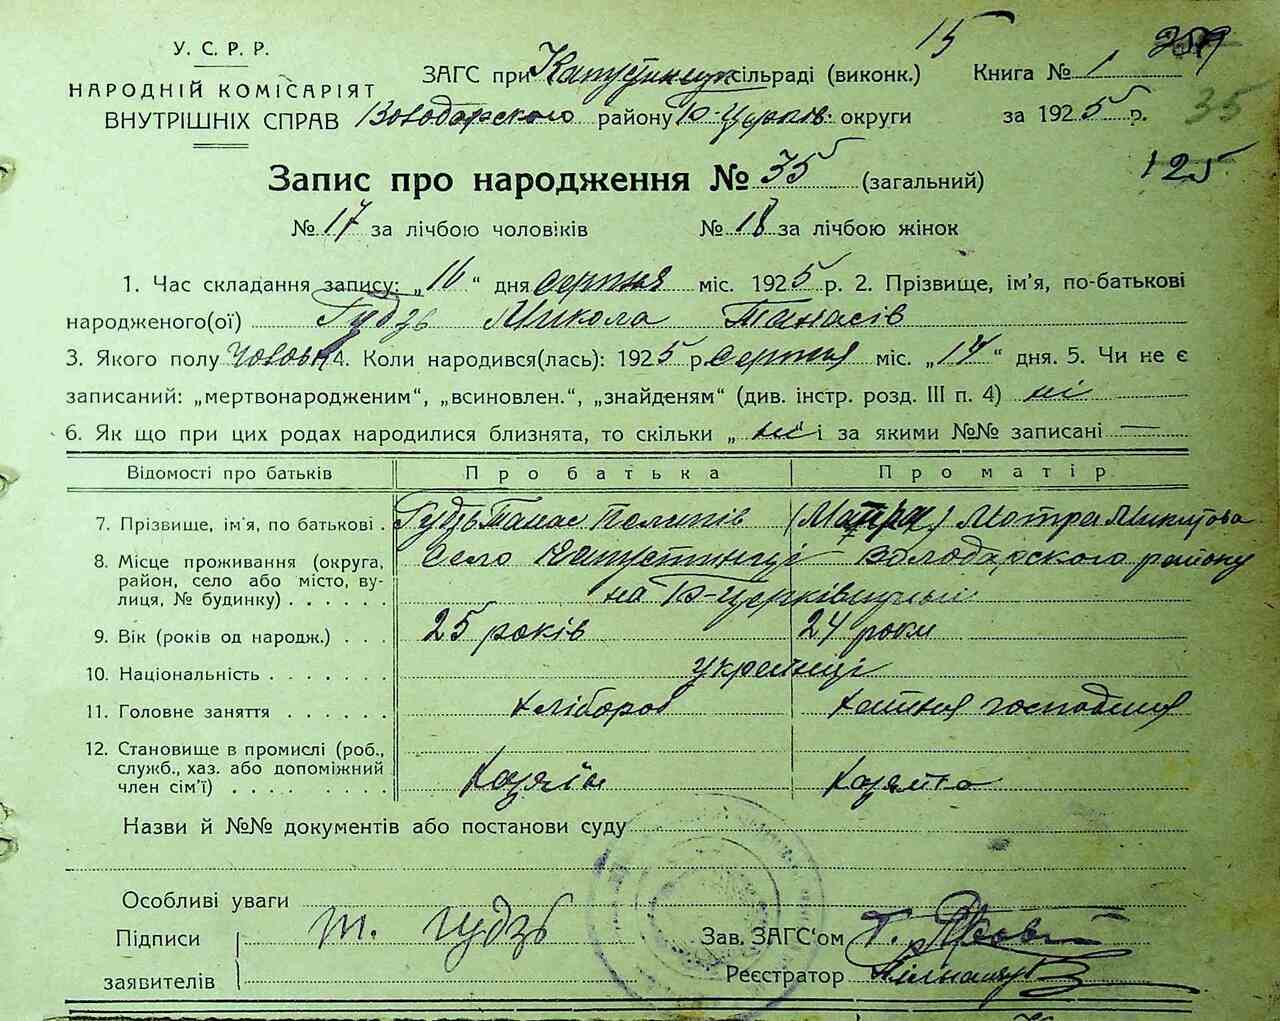 15 259
У. С. Р. Р.
НАРОДНІЙ КОМІСАРІЯТ
ВНУТРІШНІХ СПРАВ
ЗАГС при Капустинецк сільраді (виконк.) Книга № 1
Володарского району Б-Церків. округи за 1925 р. 35
125
Запис про народження № 35 (загальний)
№ 17 за лічбою чоловіків № 18 за лічбою жінок
1. Час складання запису: „16“ дня серпня міс. 1925 р. 2. Прізвище, ім'я, по-батькові
народженого(ої) Гудзь Микола Танасів
3. Якого полу Чоловік 4. Коли народився(лась): 1925 р. серпня міс. „14“ дня. 5. Чи не є
записаний: „мертвонародженим“, „всиновлен.“, „знайденям“ (див. інстр. розд. III п. 4) ні
6. Як що при цих родах народилися близнята, то скільки „ні“ і за якими №№ записані —
Відомості про батьків Про батька Про матір
7. Прізвище, ім'я, по батькові . Гудзь Танас Пелипів Мотра Микитова
8. Місце проживання (округа, район, село або місто, вулиця, № будинку) . . . . . . Село Капустинці Володарского району
на Б-Церківщині
9. Вік (років од народж.) . . . 25 років 24 роки
10. Національність . . . . . . . українці
11. Головне заняття . . . . . . хлібороб хатня господиня
12. Становище в промислі (роб., служб., хаз. або допоміжний член сім'ї) . . . . . . . . хазяїн хазяйка
Назви й №№ документів або постанови суду
Особливі уваги
Підписи
заявителів
Т. Гудзь
Зав. ЗАГС'ом
Реєстратор